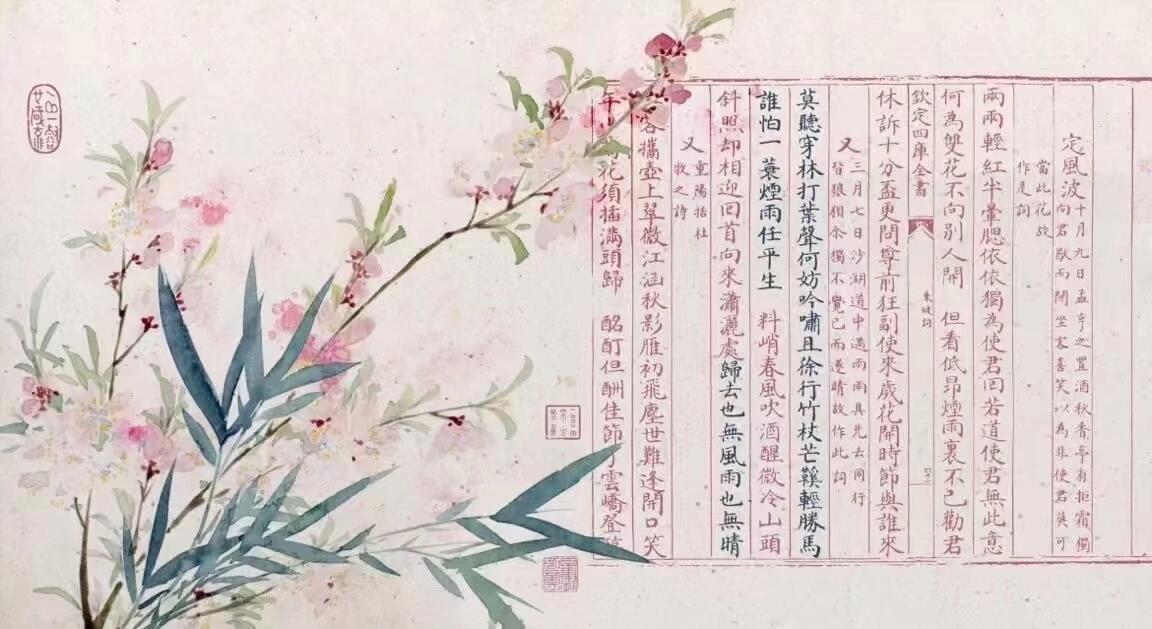 定風波 十月九日孟亨之置酒秋香亭有拒霜獨
向君猷而開坐客喜笑以為非使君莫可
當此花故
作是詞
兩兩輕紅半暈腮依依獨為使君回若道使君無此意
何為雙花不向別人開 但看低昂煙雨裏不已勸君
欽定四庫全書 東坡詞
休訴十分盃更問尊前狂副使來歲花開時節與誰來
又 三月七日沙湖道中遇雨雨具先去同行
皆狼狽余獨不覺已而遂晴故作此詞
莫聽穿林打葉聲何妨吟嘯且徐行竹杖芒鞵輕勝馬
誰怕一蓑煙雨任平生 料峭春風吹酒醒微冷山頭
斜照却相迎回首向來瀟灑處歸去也無風雨也無晴
又 重陽括杜
牧之詩
客攜壺上翠微江涵秋影雁初飛塵世難逢開口笑
年 花須插滿頭歸 酩酊但酬佳節了雲嶠登